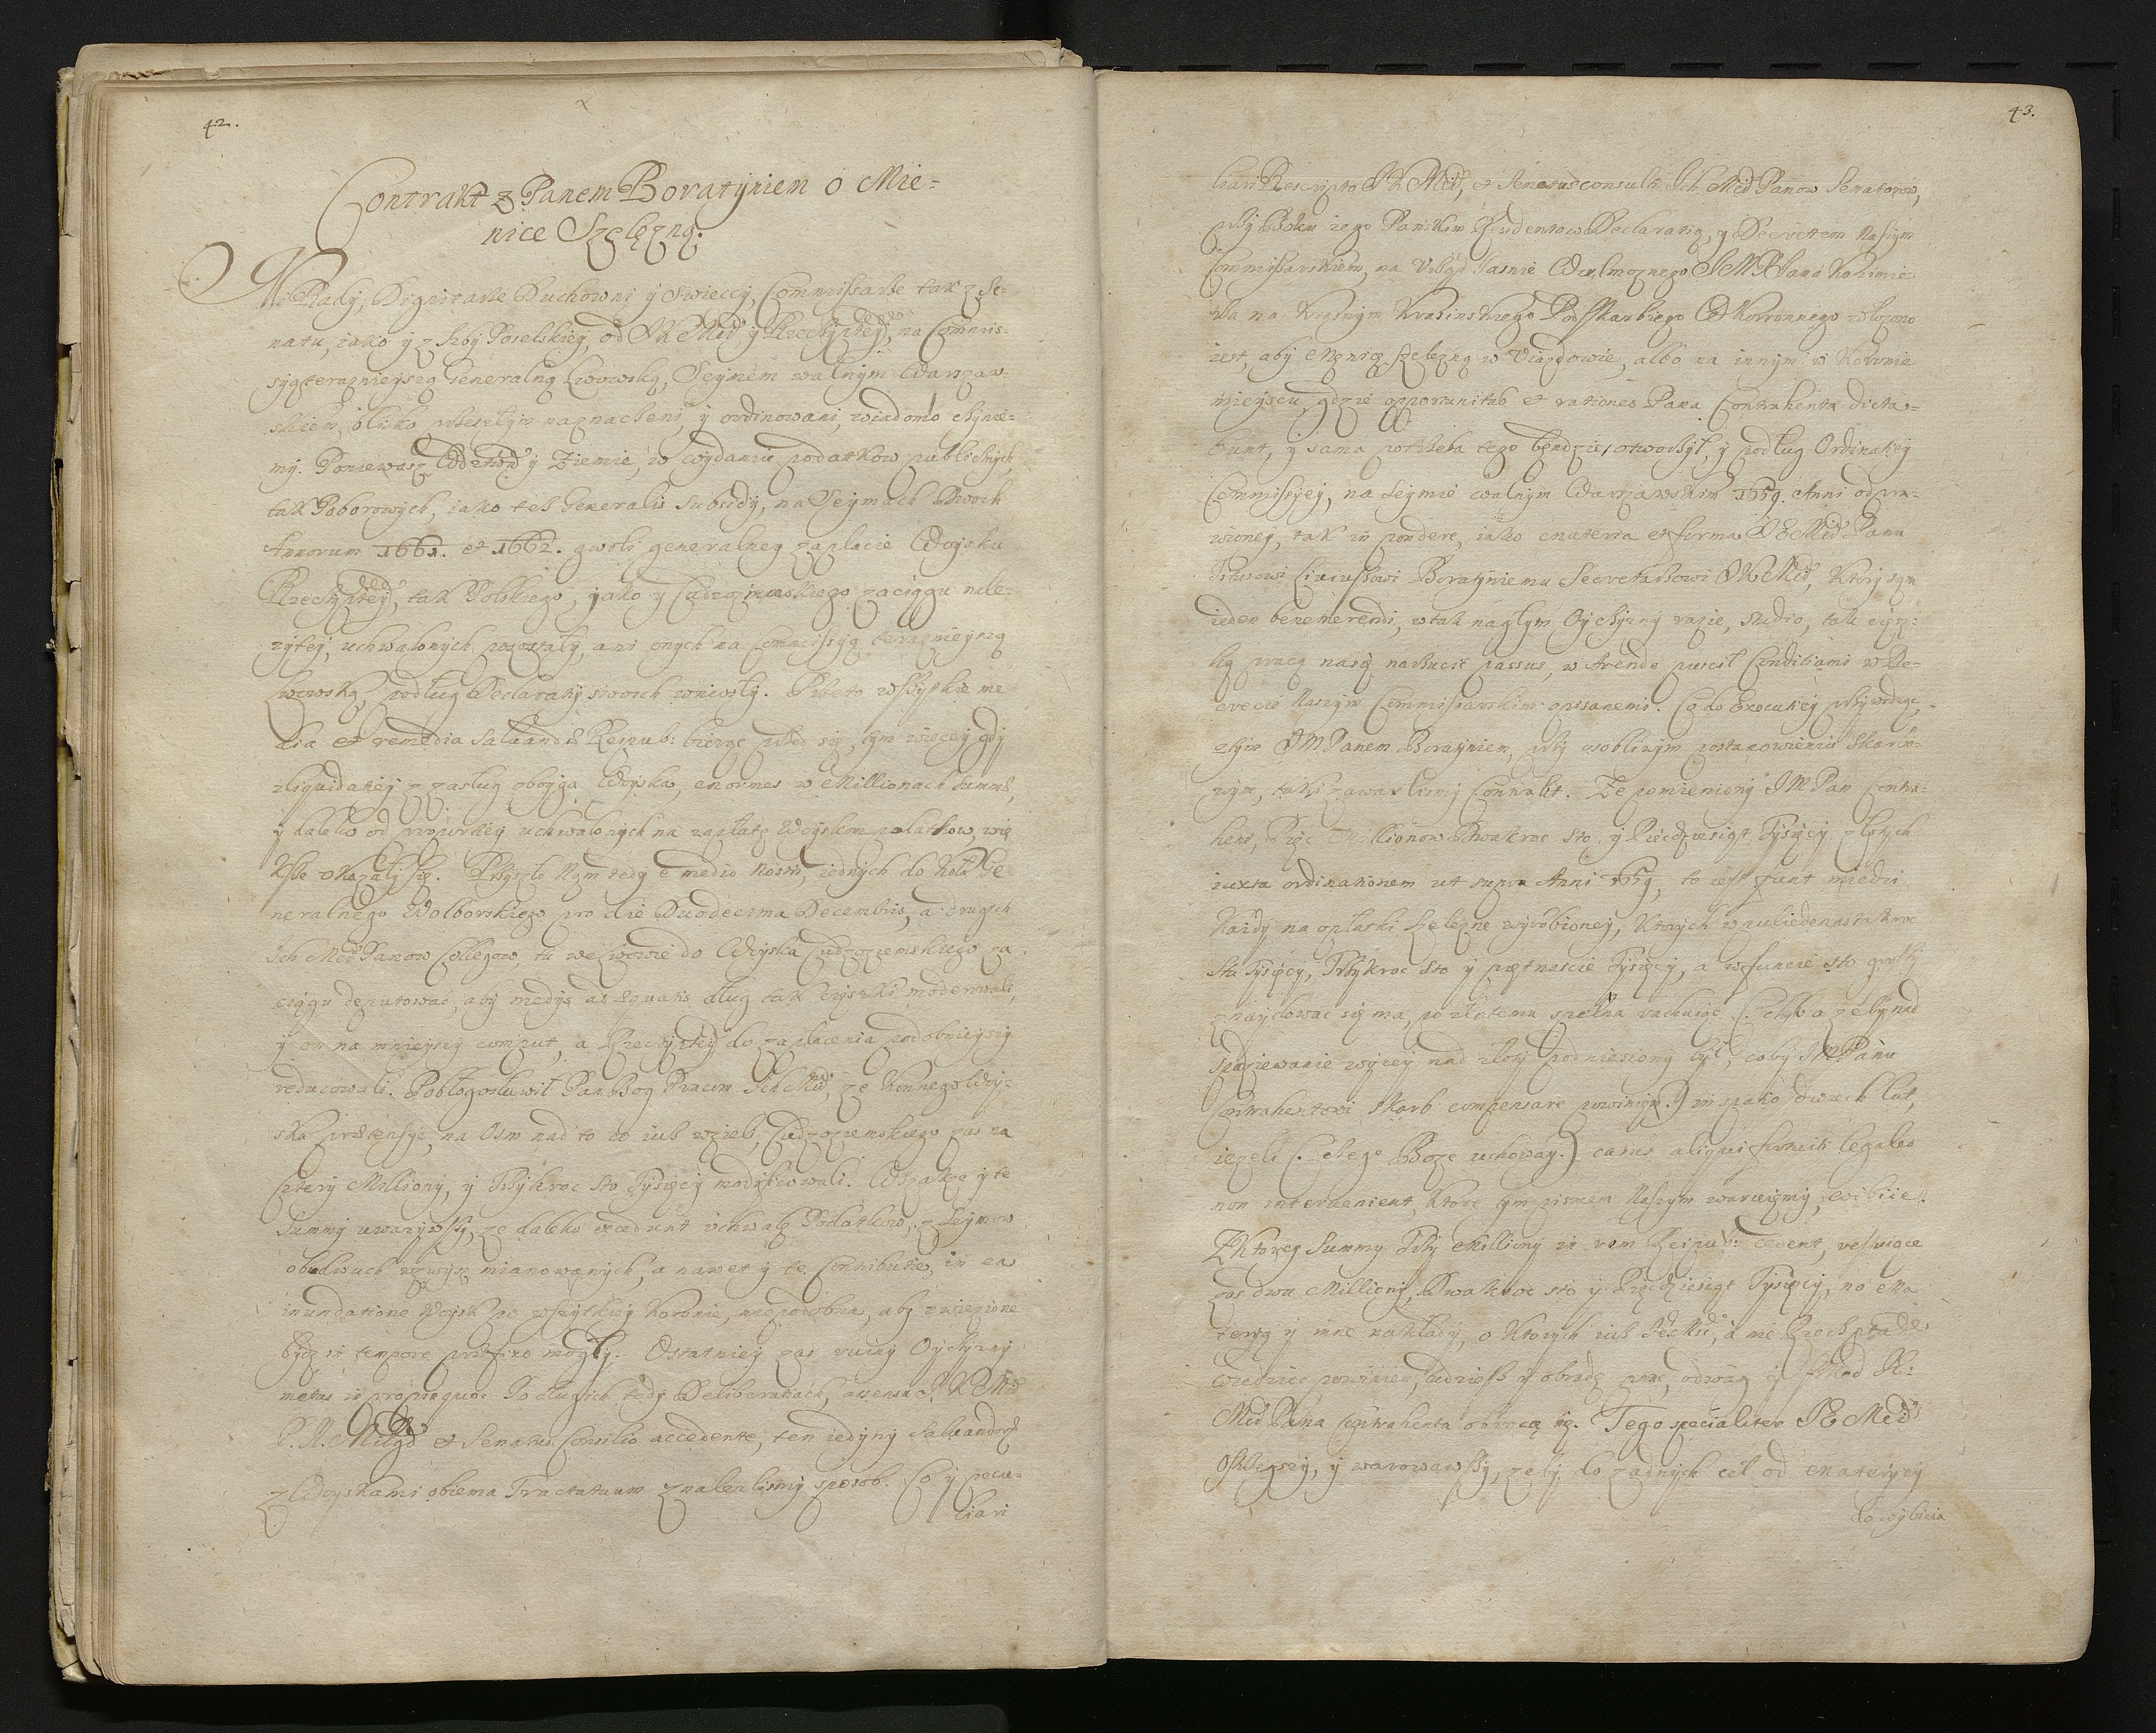 42.
Contrakt z Panem Boratyniem o Mie=
nice Szelęzną.
Mi Rady, Dignitarze Duchowni y Swieccy, Commissarze tak z Se-
natu, iako y z Izby Poselskiey, od JKMći y Rzeczyptey, na Commis-
syą terazneyszą Generalną Lwowską, Seymem walnym Warszaw-
skiem, blisko przeszłym naznaczeni, y ordinowani, wiadomo czynie-
my. Poniewasz Wdztwa y Ziemie, w wydaniu podatkow publicznych,
tak Poborowych, iako też Generalis Subsidy, na Seymach Dwoch
Annorum 1661. et 1662. gwoli generalney zapłacie Woysku
Rzeczyptey, tak Polskiego, jako y Cudzoziemskiego zaciągu nale-
zytey, uchwalonych, ani onych na Commissyą terazneyszą
Lwowską, podług Declaraty swoich wniosły. Przeto wszystkie me
dia et remedia salvandæ Reipub: biorąc przed się, tym więcey gdy
z liquidatiey z zasług oboyga Woyska, enormes w Millionach summæ,
y daleko od uchwalonych na zapłatę Woyskom podatkow, wię
ksze okazały się. Przyszło Nam tedy e medio nostri, iednych do Koła Ge-
neralnego Wolborskiego, pro die Duodecima Decembris, a drugich
Ich Mći Panow Collegow, tu we Lwowie do Woyska Cudzoziemskiego za
ciągu deputować, aby medys ad æquatis dług tak moderowali,
y on na mnieyszy comput, a Rzeczyptey do zapłacenia podobnieyszy
reducowali. Pobłogosławił Pan Bog Pracom Ich Mći, ze Konnego Woy-
ska prætensye, na Osm nad to co iuż wzieli, Cudzoziemskiego zas na
Cztery Milliony, y Trzykroc sto Tysięcy modificowali. Wszakze y te
Summy uwazywszy, ze daleko excedunt uchwałę Podatkow, z Seymow
obudwuch wzwysz mianowanych, a nawet y te Contributie, in ea
inundatione Woysk po wszytkiey Koronie, niepodobna, aby zwiezione
bydz in tempore præfixo mogły. Ostatniey zas ruiny Oyczyzny
metus in propinquo. Po długich tedy Deliberatiach, assensu JKMći
P. N. Miłgo et Senatus Consilio accedente, ten iedyny salvandorum
z Woyskami obiema Tractatuum znalezlismy sposob. Co y pecu-
liari
43.
liari Rescripto JKMći, et Senatusconsulto Ich Mći Panow Senatorow,
przy Boku iego Panskim Rezidentow Declaratią, y Decretem Naszym
Commissarskiem, na Urząd Jasnie Wielmoznego JeMPana Kazimie-
rza na Krasnym Krasinskiego Podskarbiego W Koronnego włozono
iest, aby Mznicę szelezną w Viazdowie, albo na innym w Koronie
mieyscu, gdzie opportunitas et rationes Pana Contrahenta dicta-
bunt, y sama potrzeba tego będzie, otworzył, y podług Ordinatiey
Commissyey, na Seymie walnym Warszawskim 1659. Anni odpra-
wioney, tak in pondere, iako materia et forma JE Mći Panu
Titusowi Liviussowi Boratyniemu Secretarzowi JKMći, ktory sam
ieden benemerendi, w tak nagłym Oyczyzny razie, studio, tak cięsz-
ką pracą na się narzucić passus, w Arendę puscił Conditiami w De-
crecie Naszym Commissarskim opisanemi. Co do Executiey przywodząc,
z tym JM Panem Boratyniem, przy osobliwym postanowieniu Skarbo-
wym, taki zawarlismy Contrakt. Ze pomieniony JM Pan Contra-
hent, Pięc Millionow Dwakroc sto, y Piędziesiąt Tysięcy złotych
iuxta ordinationem ut supra Anni 1659, to iest funt miedzi
kazdy na opłatki szelęzne wyrobioney, ktorych wpuł iedenasta kroc
sta Tysięcy, Trzykroc sto y piętnascie Tysięcy, a w funcie sto groszy
znaydować się ma, po złotemu spełna rachuiąc (: chyba zeby nad
spodziewanie więcey nad złoty podniesiony był, coby JM Panu
Contrahentowi Skarb compensare powinien:) in spatio dwuch lat,
iezeli (: czego Boze uchoway:) casus aliqui fortuiti legales
non intervenient, ktore tym pismem Naszym waruiemy, wybiie.
Z ktorey Summy Trzy Milliony in rem Reipub: cedent, resztuiące
zas dwa Milliony, Dwakroc sto y Piędziesiąt Tysięcy, na ma
teryą y inne nakłady, o ktorych iuż, a nie Rzeczpta
wiedziec powinien, tudziesz y obradę prac, odwag y szkod JE:
Mći Pana Contrahenta obrocą się. Tego specialiter JE Mći
Ostrzegszy, y warowawszy, zeby do zadnych ceł od materyey
do wybicia